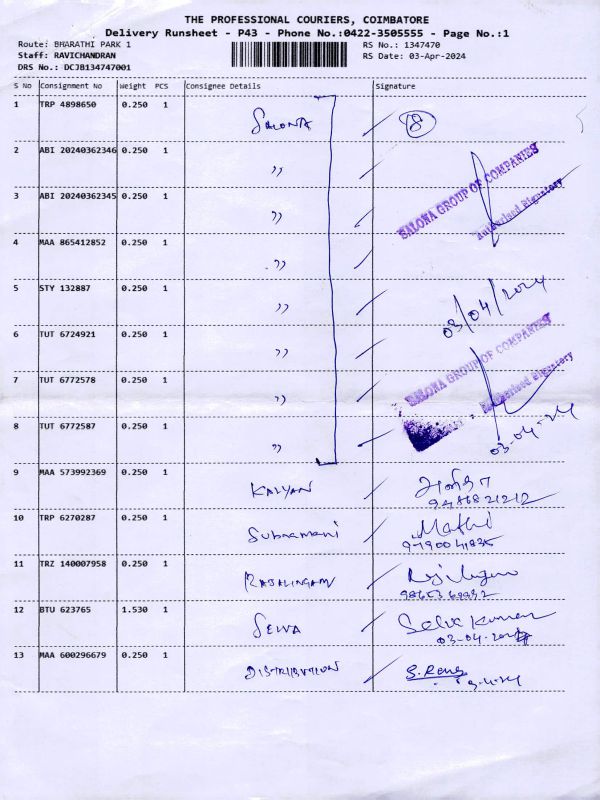 THE PROFESSIONAL COURIERS, COIMBATORE
Delivery Runsheet - P43 - Phone No.:0422-3505555 - Page No.:1
Route: BHARATHI PARK 1 RS No.: 1347470
Staff: RAVICHANDRAN RS Date: 03-Apr-2024
DRS No.: DCJB134747001
S No Consignment No Weight PCS Consignee Details Signature
1 TRP 4898650 0.250 1 SALONA 8
2 ABI 20240362346 0.250 1 ,,
SALONA GROUP OF COMPANIES
Authorised Signatory
3 ABI 20240362345 0.250 1 ,,
4 MAA 865412852 0.250 1 ,,
5 STY 132887 0.250 1 ,, 03/04/2024
6 TUT 6724921 0.250 1 ,,
SALONA GROUP OF COMPANIES
Authorised Signatory
7 TUT 6772578 0.250 1 ,,
8 TUT 6772587 0.250 1 ,, 03-04-24
9 MAA 573992369 0.250 1 KALYAN
9486821212
10 TRP 6270287 0.250 1 Subramani Mathi
11 TRZ 140007958 0.250 1 RAJALINGAM
12 BTU 623765 1.530 1 SELVA Selva Kumar
03-04-2024
13 MAA 600296679 0.250 1 DISTRIBUTION